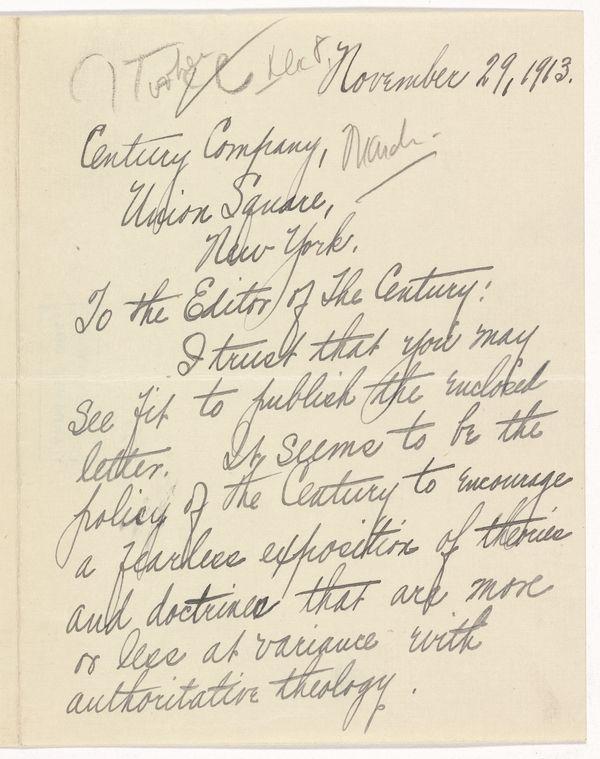 Dec 8,
November 29, 1913.
Century Company,
March
Union Square,
New York.
To the Editor of The Century:
I trust that you may
see fit to publish the enclosed
letter. It seems to be the
policy of the Century to encourage
a fearless exposition of theories
and doctrines that are more
or less at variance with
authoritative theology.